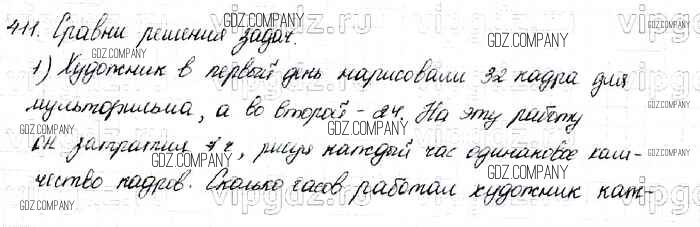 411. Сравни решения задач.
1) Художник в первый день нарисовали 32 кадра для
мультфильма, а во второй - 24. На эту работу
он затратил 7 ч, рисуя каждый час одинаковое коли-
чество кадров. Сколько часов работал художник каж-
GDZ.COMPANY
GDZ.COMPANY
GDZ.COMPANY
GDZ.COMPANY
GDZ.COMPANY
GDZ.COMPANY
GDZ.COMPANY
GDZ.COMPANY